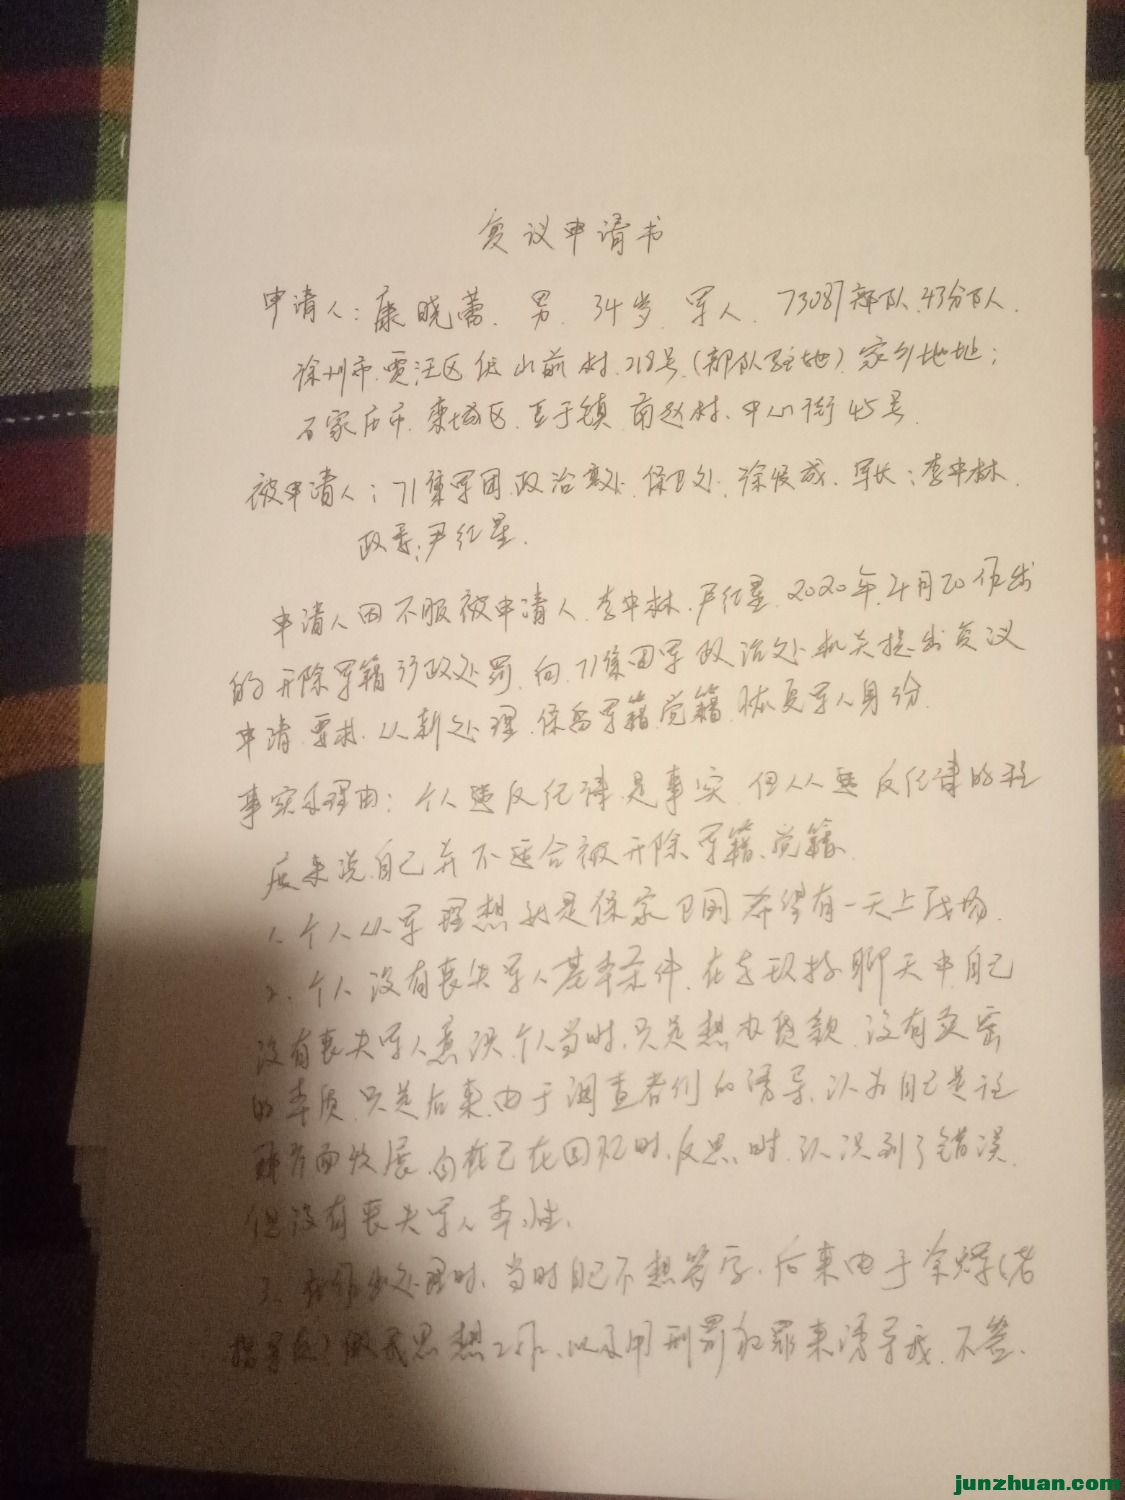 复议申请书
申请人：康晓蕾．男．34岁．军人．73087部队．43分队．
徐州市．贾汪区 山前村．218号．(部队驻地) 家乡地址：
石家庄市．栾城区． 于镇 南赵村．中心街45号．
被申请人：71集军团．政治 处．保卫处．徐俊成．军长：李中林．
政委：尹红星．
申请人因不服被申请人．李中林．尹红星．2020年．4月20作出
的开除军籍行政处罚．向71集团军政治处机关提出复议
申请．要求．从新处理．保留军籍．党籍．恢复军人身份．
事实和理由：个人违反纪律是事实．但从人违反纪律的程
度来说．自己并不适合被开除军籍、党籍．
1．个人从军理想就是保家卫国 希望有一天上战场．
2．个人没有丧失军人基本条件．在 聊天中自己
没有丧失军人意识．个人当时．只是想办贷款．没有卖密
的本质．只是后来．由于调查者们的诱导．认为自己是往
那方面发展．自 己在 时．反思时．认识到了错误．
但没有丧失军人本性．
3． 处理时．当时自己不想签字．后来由于余辉(老
指导员)做我思想工作．以及用刑罚犯罪来诱导我．不签．
junzhuan.com